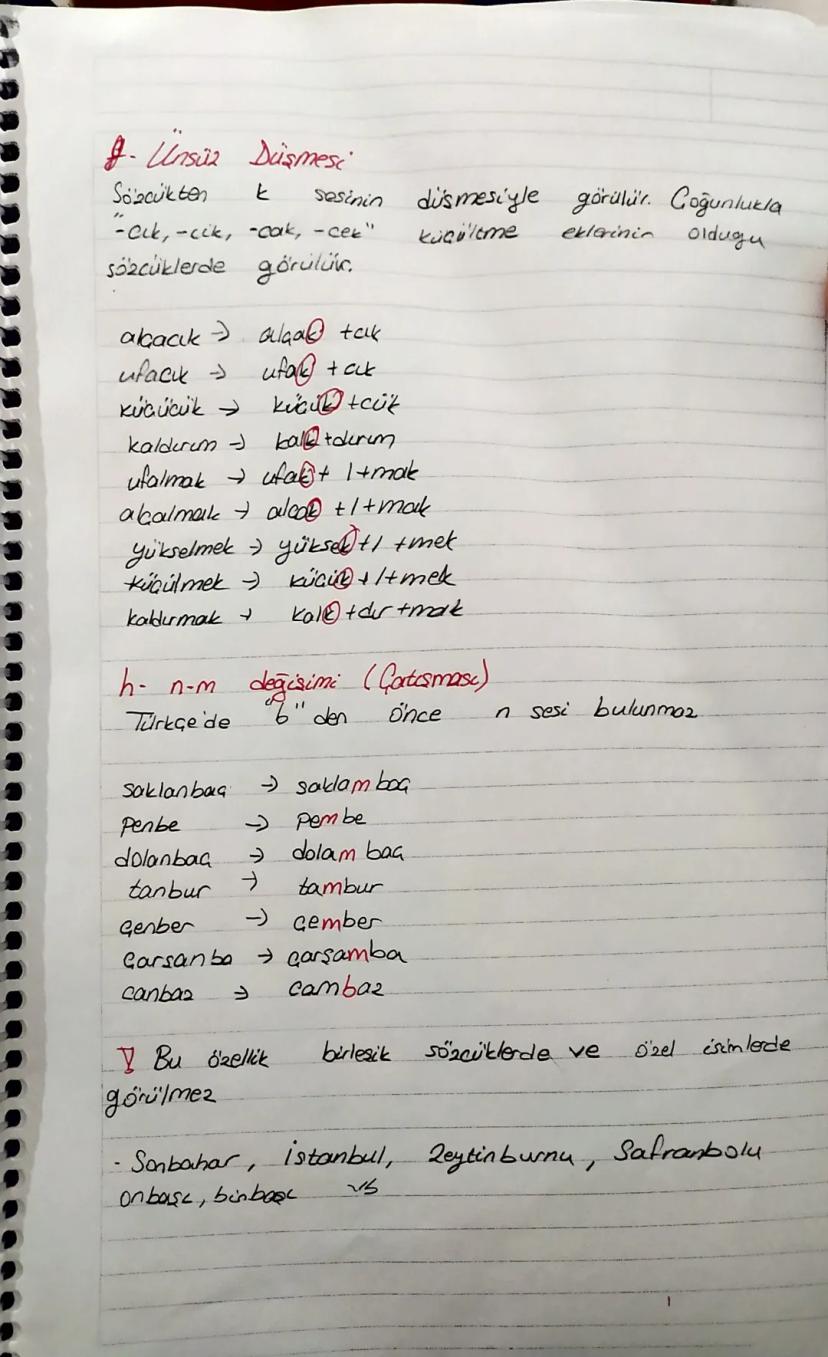 g- Ünsüz Düşmesi
Sözcükten k sesinin düşmesiyle görülür. Çoğunlukla
"-cık, -cik, -cak, -cek" küçültme eklerinin olduğu
sözcüklerde görülür.
alçacık → alçak +cık
ufacık → ufak + cık
küçücük → küçük +cük
kaldırım → kalk +dırım
ufalmak → ufak + l +mak
alçalmak → alçak + l +mak
yükselmek → yüksek +l +mek
küçülmek → küçük + l +mek
kaldırmak → kalk +dır +mak
h- n-m değişimi (Çatışması)
Türkçe'de "b" den önce n sesi bulunmaz
saklanbaç → saklambaç
penbe → pembe
dolanbaç → dolambaç
tanbur → tambur
çenber → çember
çarşanba → çarşamba
canbaz → cambaz
! Bu özellik birleşik sözcüklerde ve özel isimlerde
görülmez
- Sonbahar, İstanbul, Zeytinburnu, Safranbolu
onbaşı, binbaşı vb